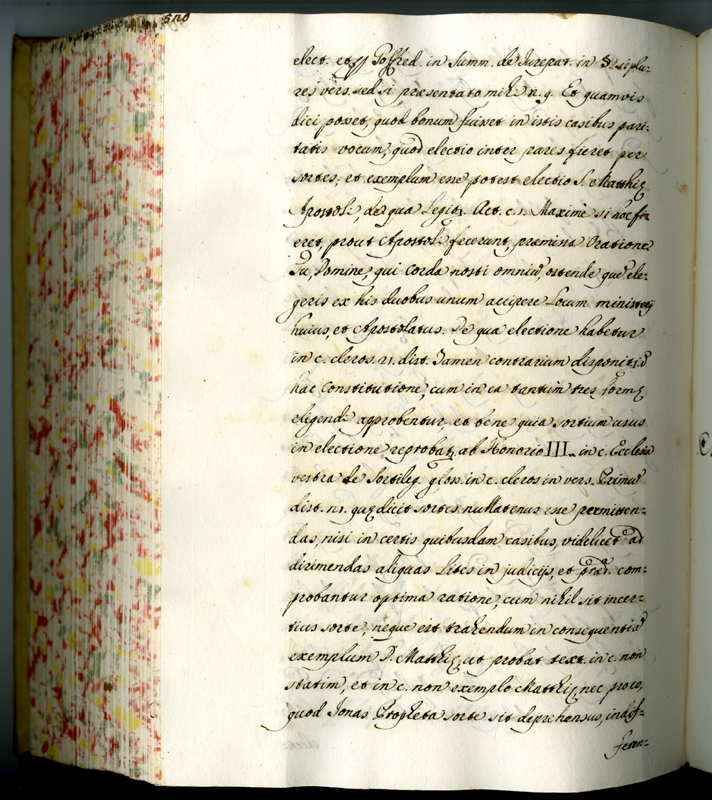 520
elect. et Goffred. in Summ. de Jurepat. in §. si plu-
res vers. sed si presentato mihi n. 9. Et quamvis
dici posset, quod bonum fuisset in istis casibus pari-
tatis vocum, quod electio inter pares fieret per
sortes, et exemplum esse potest electio S. Matthię
Apostoli de qua legit.r Act. c. 1. Maxime si hoc fi-
eret, prout Apostoli fecerunt, premissa Oratione
Tu, Domine, qui Corda nosti omniū, ostende quē ele-
geris ex his duobus unum accipere Locum ministerij
huius, et Apostolatus. De qua electione habetur
in c. cleros. 21. dist. Tamen contrarium disponit.r
hac Constitutione, cum in ea tantum tres formę
eligendi approbentur, et bene quia sortium usus
in electione reprobat. ab Honorio III. in c. Ecclesia
vestra de Sortileg. glos. in c. cleros in vers. Primū
dist. 21. quę dicit sortes nullatenus esse permitten-
das, nisi in certis quibusdam casibus, videlicet ad
dirimendas aliquas Lites in judicijs, et com-
probantur optima ratione, cum nihil sit incer-
tius sorte, neque est trahendum in consequentiā
exemplum D. Matthię, ut probat text. in c. non
statim, et in c. non exemplo Matthię, nec pro eo,
quod Jonas Propheta sorte sit deprehensus, indif-
feren-